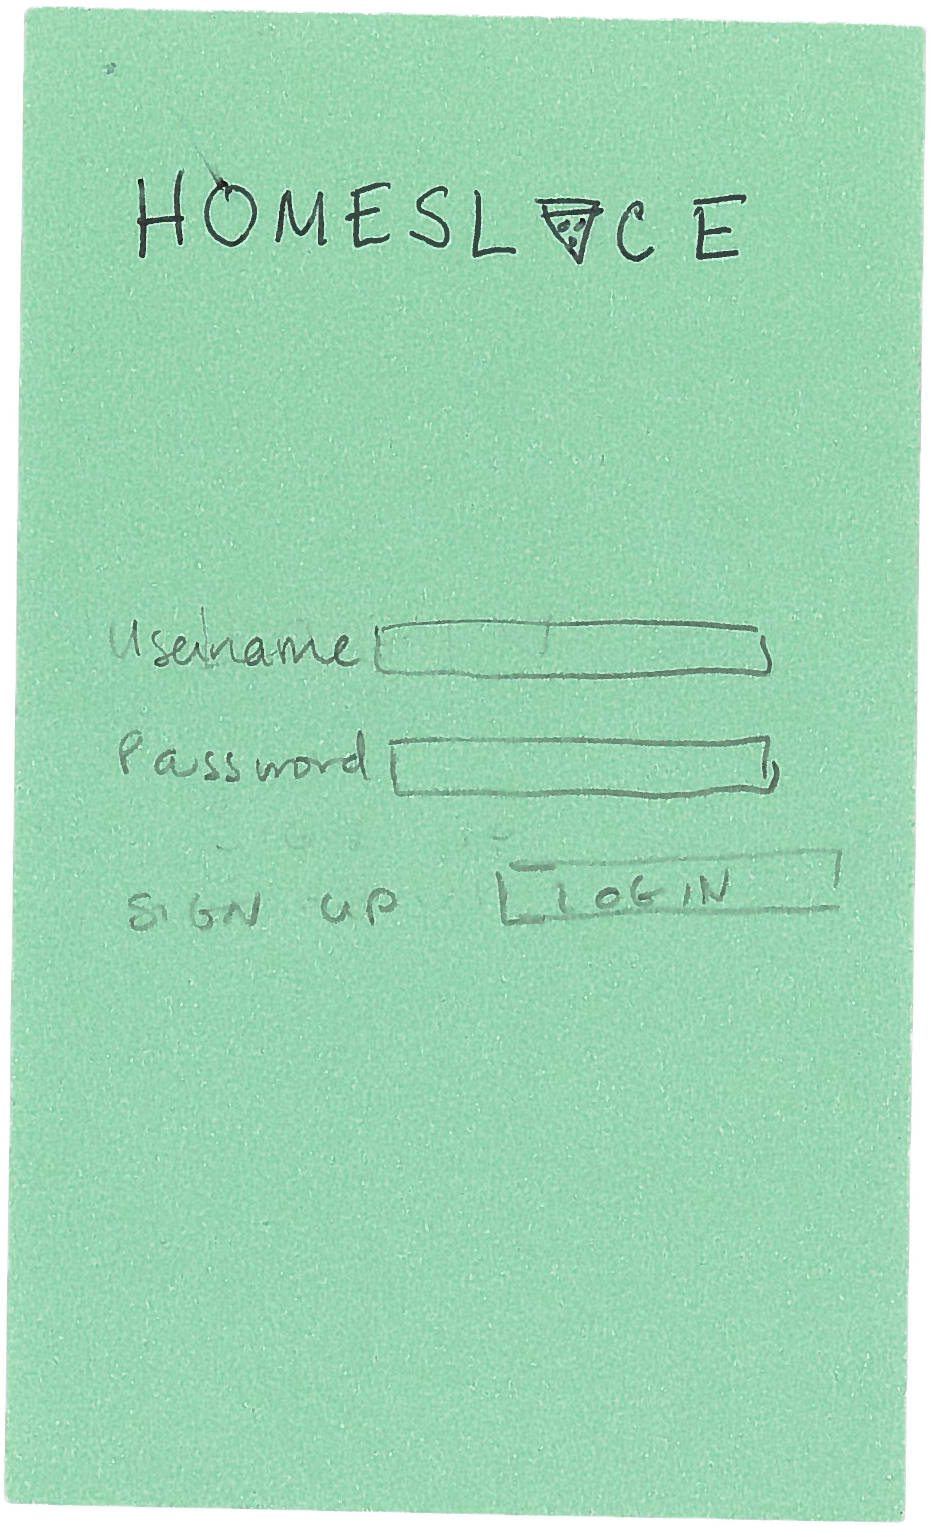 HOMESL CE
Username
Password
SIGN UP LOGIN